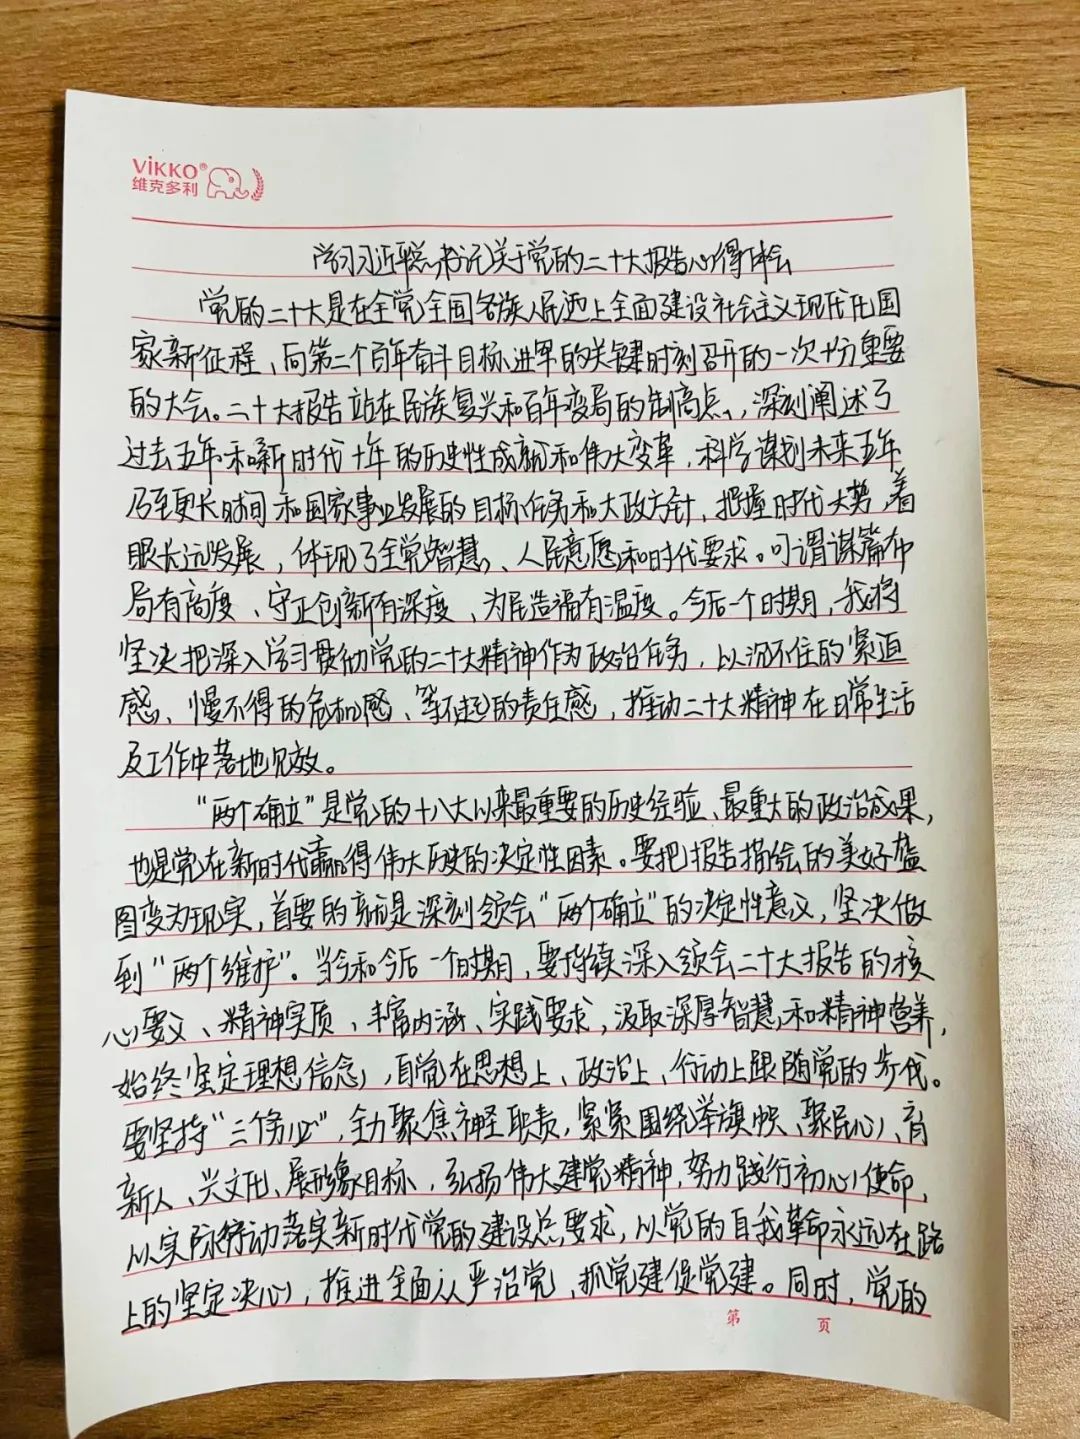 VIKKO®
维克多利
学习习近平总书记关于党的二十大报告心得体会
党的二十大是在全党全国各族人民迈上全面建设社会主义现代化国
家新征程、向第二个百年奋斗目标进军的关键时刻召开的一次十分重要
的大会。二十大报告站在民族复兴和百年变局的制高点,深刻阐述了
过去五年和新时代十年的历史性成就和伟大变革,科学谋划未来五年
乃至更长时间和国家事业发展的目标任务和大政方针,把握时代大势,着
眼长远发展,体现了全党智慧、人民意愿和时代要求。可谓谋篇布
局有高度、守正创新有深度、为民造福有温度。今后一个时期,我将
坚决把深入学习贯彻党的二十大精神作为政治任务,以沉不住的紧迫
感、慢不得的危机感、等不起的责任感,推动二十大精神在日常生活
及工作中落地见效。
“两个确立”是党的十八大以来最重要的历史经验、最重大的政治成果,
也是党在新时代赢得伟大历史的决定性因素。要把报告描绘的美好蓝
图变为现实,首要的就是深刻领会“两个确立”的决定性意义,坚决做
到“两个维护”。当今和今后一个时期,要持续深入领会二十大报告的核
心要义、精神实质、丰富内涵、实践要求,汲取深厚智慧和精神营养,
始终坚定理想信念,自觉在思想上、政治上、行动上跟随党的步伐。
要坚持“三个务必”,全力聚焦神圣职责,紧紧围绕举旗帜、聚民心、育
新人、兴文化、展形象目标,弘扬伟大建党精神,努力践行初心使命,
以实际行动落实新时代党的建设总要求,以党的自我革命永远在路
上的坚定决心,推进全面从严治党、抓党建促党建。同时,党的
第 页